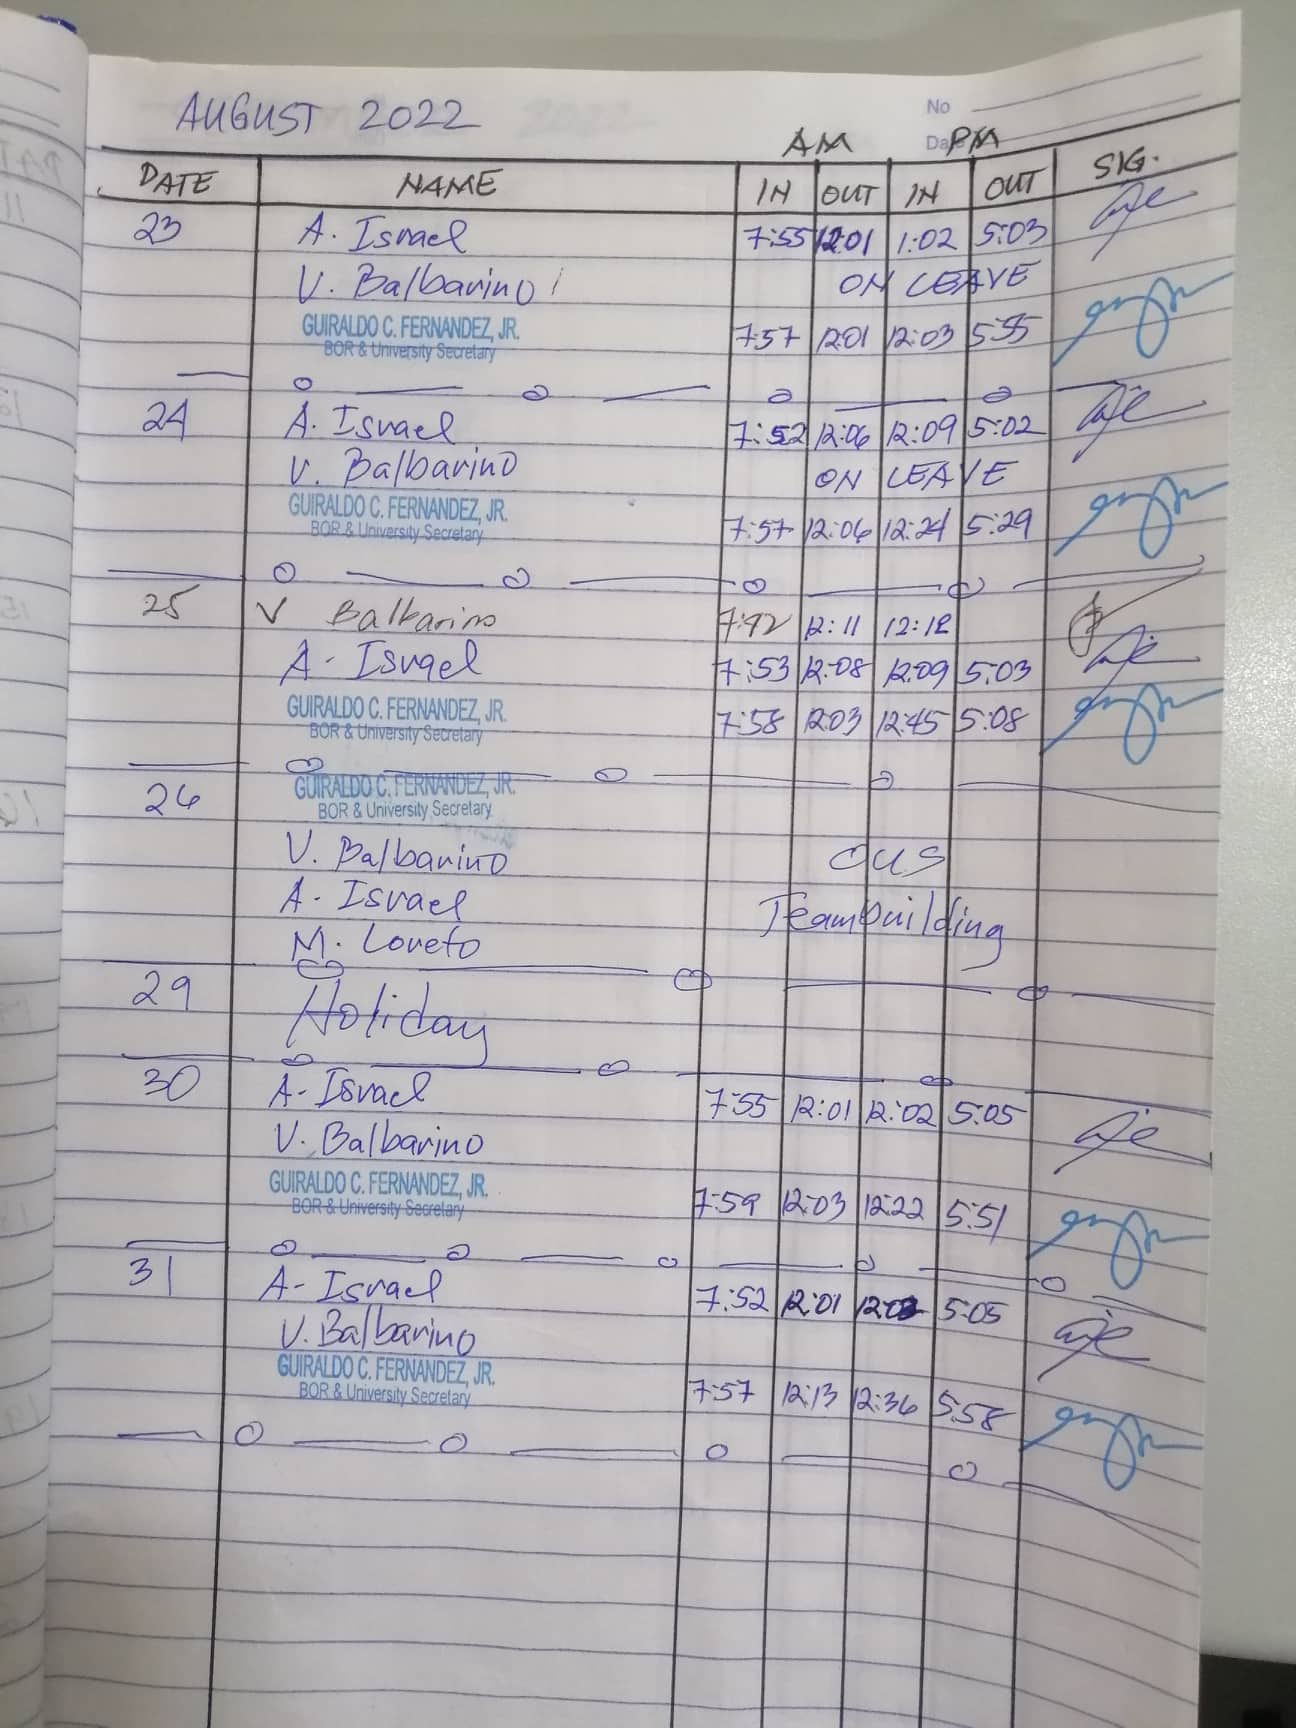 AUGUST 2022
No
Da
AM PM
DATE NAME IN OUT IN OUT SIG.
23 A. Israel 7:55 12:01 1:02 5:03
V. Balbarino ON LEAVE
GUIRALDO C. FERNANDEZ, JR. 7:57 12:01 12:03 5:55
BOR & University Secretary
24 A. Israel 7:52 12:06 12:09 5:02
V. Balbarino ON LEAVE
GUIRALDO C. FERNANDEZ, JR. 7:57 12:06 12:24 5:29
BOR & University Secretary
25 V Balbarino 7:42 12:11 12:12
A. Israel 7:53 12:08 12:09 5:03
GUIRALDO C. FERNANDEZ, JR. 7:58 12:03 12:45 5:08
BOR & University Secretary
26 GUIRALDO C. FERNANDEZ, JR.
BOR & University Secretary
V. Balbarino OUS
A. Israel Teambuilding
M. Loreto
29 Holiday
30 A. Israel 7:55 12:01 12:02 5:05
V. Balbarino
GUIRALDO C. FERNANDEZ, JR. 7:59 12:03 12:22 5:51
BOR & University Secretary
31 A. Israel 7:52 12:01 5:05
V. Balbarino
GUIRALDO C. FERNANDEZ, JR. 7:57 12:13 12:36 5:58
BOR & University Secretary